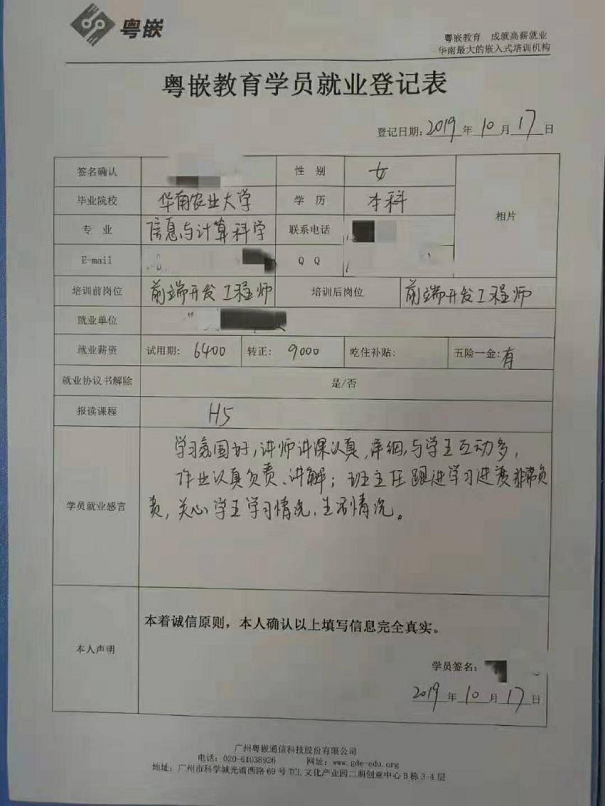 粤嵌
粤嵌教育 成就高薪就业
华南最大的嵌入式培训机构
粤嵌教育学员就业登记表
登记日期: 2019 年 10 月 17 日
签名确认 性 别 女
毕业院校 华南农业大学 学 历 本科
相片
专 业 信息与计算科学 联系电话
E-mail Q Q
培训前岗位 前端开发工程师 培训后岗位 前端开发工程师
就业单位
就业薪资 试用期: 6400 转正: 9000 吃住补贴: 五险一金: 有
就业协议书解除 是/否
报读课程 H5
学员就业感言
学习氛围好,讲师讲课认真,详细,与学生互动多,
作业认真负责、讲解;班主任跟进学习进度非常负
责,关心学生学习情况,生活情况。
本人声明
本着诚信原则,本人确认以上填写信息完全真实。
学员签名:
2019 年 10 月 17 日
广州粤嵌通信科技股份有限公司
电话: 020-61038926 网址: www.gde-edu.org
地址: 广州市科学城光谱西路69号TCL文化产业园二期创意中心B栋3-4层